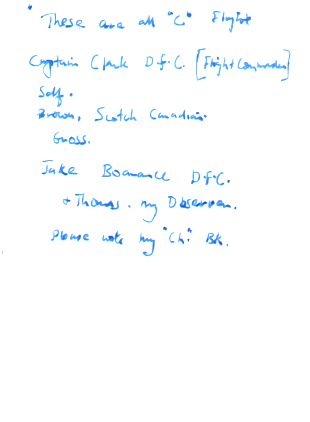 These are all "C" Flight
Captain Clark D.F.C. [Flight Commander]
Self.
Brown, Scotch Canadian.
Gnoss.
Jake D.F.C.
& Thomas. my Observer.
Please note my "Ch." Bk.